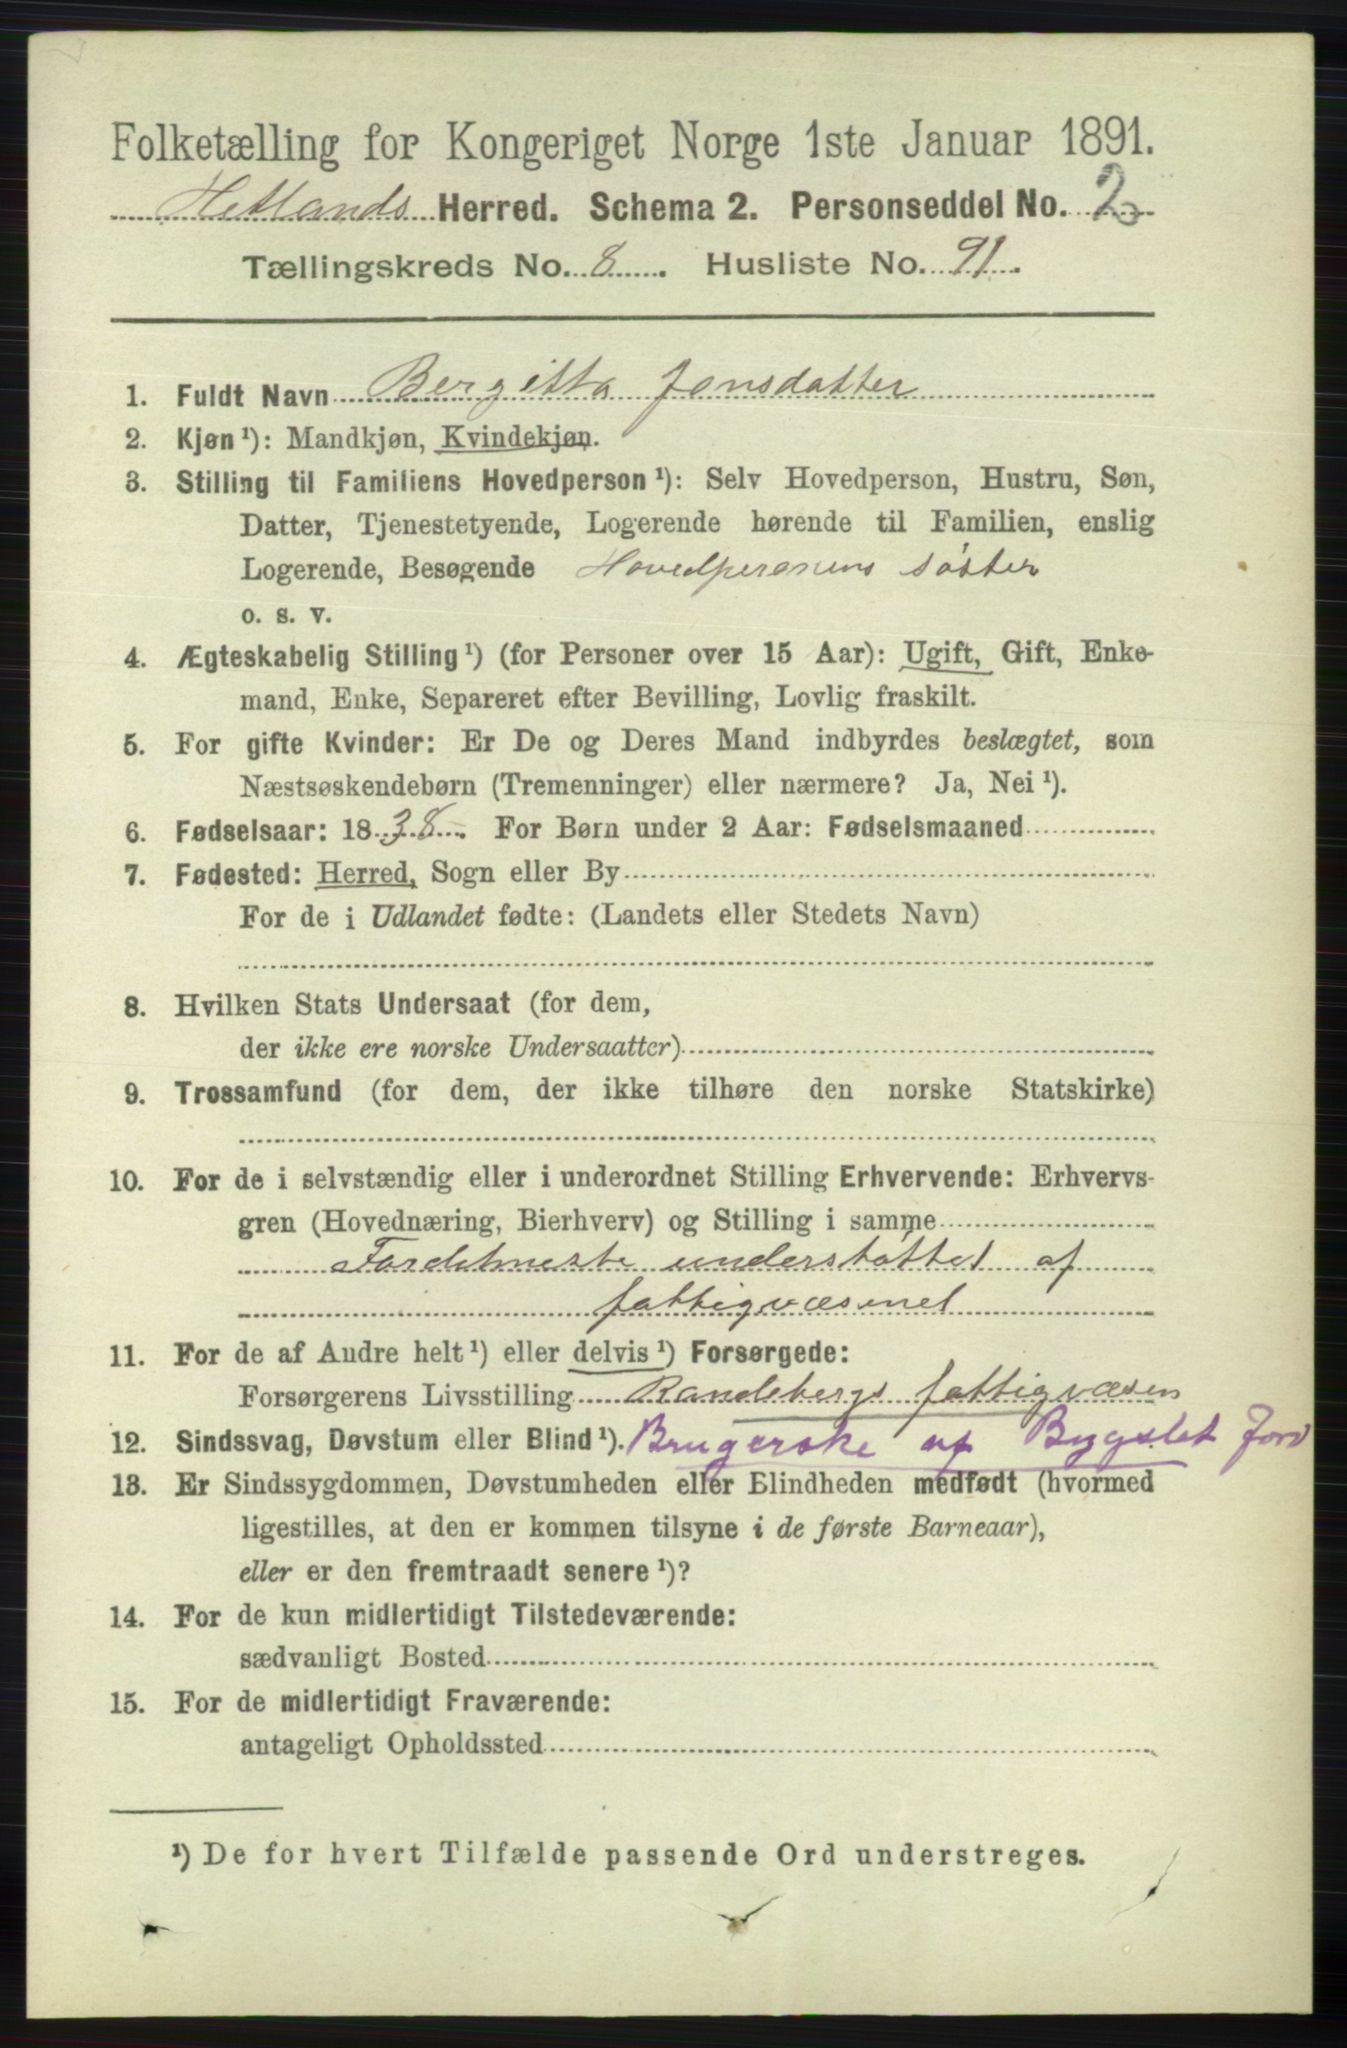 Folketælling for Kongeriget Norge 1ste Januar 1891.
Hetlands Herred. Schema 2. Personseddel No. 2
Tællingskreds No. 8. Husliste No. 91.
1. Fuldt Navn Bergitta Jonsdatter
2. Kjøn ¹): Mandkjøn, Kvindekjøn.
3. Stilling til Familiens Hovedperson ¹): Selv Hovedperson, Hustru, Søn,
Datter, Tjenestetyende, Logerende hørende til Familien, enslig
Logerende, Besøgende Hovedpersonens søster
o. s. v.
4. Ægteskabelig Stilling ¹) (for Personer over 15 Aar): Ugift, Gift, Enke-
mand, Enke, Separeret efter Bevilling, Lovlig fraskilt.
5. For gifte Kvinder: Er De og Deres Mand indbyrdes beslægtet, som
Næstsøskendebørn (Tremenninger) eller nærmere? Ja, Nei ¹).
6. Fødselsaar: 1838. For Børn under 2 Aar: Fødselsmaaned
7. Fødested: Herred, Sogn eller By
For de i Udlandet fødte: (Landets eller Stedets Navn)
8. Hvilken Stats Undersaat (for dem,
der ikke ere norske Undersaatter)
9. Trossamfund (for dem, der ikke tilhøre den norske Statskirke)
10. For de i selvstændig eller i underordnet Stilling Erhvervende: Erhvervs-
gren (Hovednæring, Bierhverv) og Stilling i samme
Fordetmeste understøttet af
fattigvæsenet
11. For de af Andre helt ¹) eller delvis ¹) Forsørgede:
Forsørgerens Livsstilling Randebergs fattigvæsen
12. Sindssvag, Døvstum eller Blind ¹). Brugerske af Bygslet Jord
13. Er Sindssygdommen, Døvstumheden eller Blindheden medfødt (hvormed
ligestilles, at den er kommen tilsyne i de første Barneaar),
eller er den fremtraadt senere ¹)?
14. For de kun midlertidigt Tilstedeværende:
sædvanligt Bosted
15. For de midlertidigt Fraværende:
antageligt Opholdssted
¹) De for hvert Tilfælde passende Ord understreges.